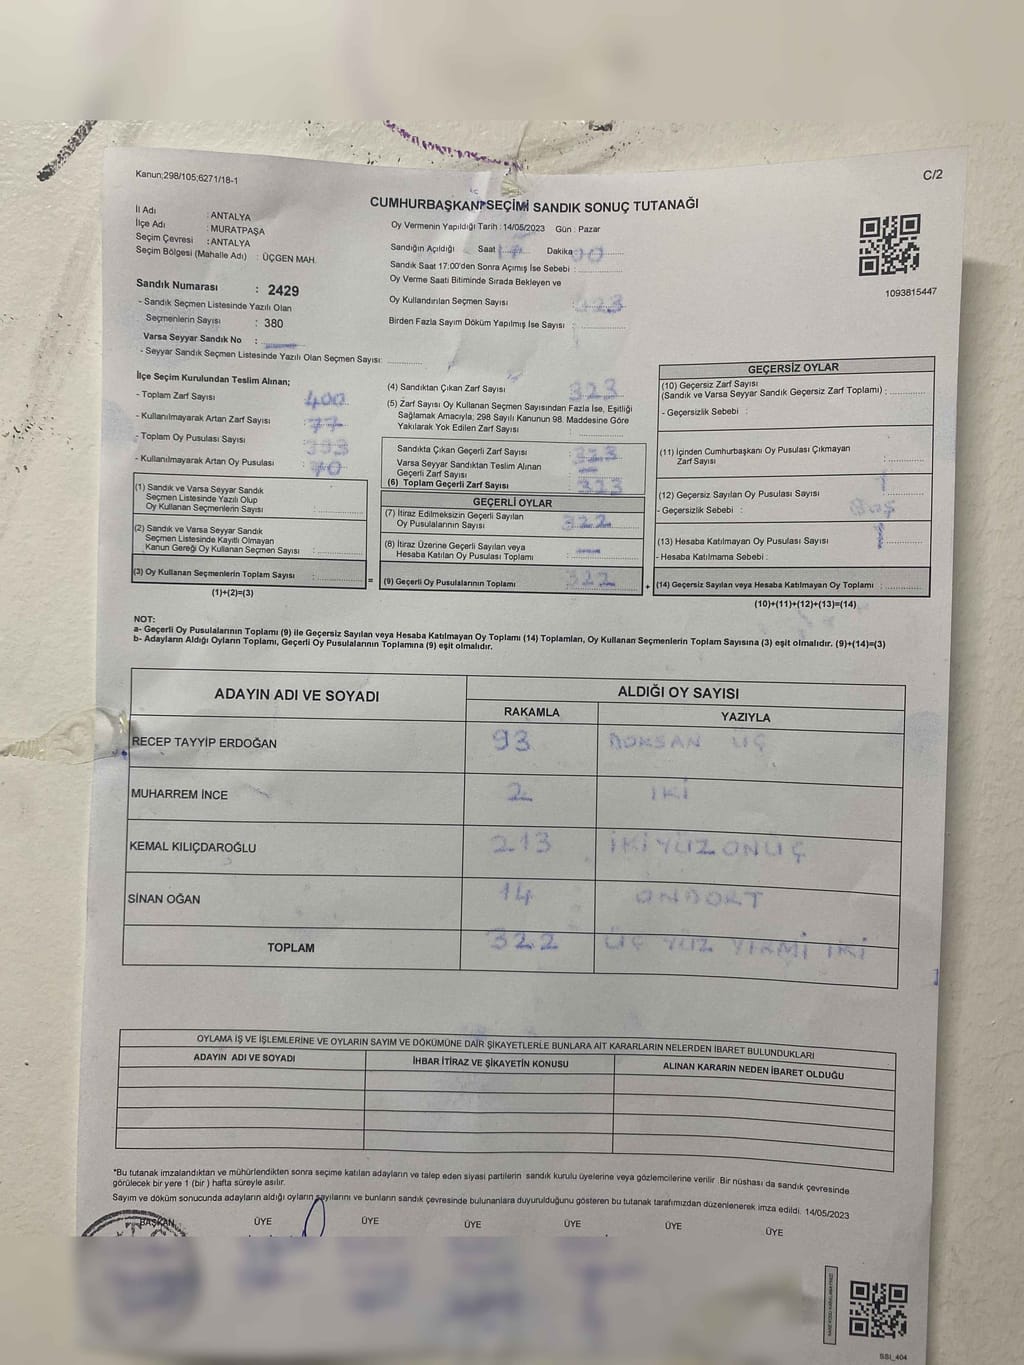 Kanun;298/105;6271/18-1
C/2
CUMHURBAŞKANI SEÇİMİ SANDIK SONUÇ TUTANAĞI
İl Adı : ANTALYA
İlçe Adı : MURATPAŞA
Seçim Çevresi : ANTALYA
Seçim Bölgesi (Mahalle Adı) : ÜÇGEN MAH.
Oy Vermenin Yapıldığı Tarih : 14/05/2023 Gün : Pazar
Sandığın Açıldığı Saat 17 Dakika 00
Sandık Saat 17:00'den Sonra Açımış İse Sebebi :
Oy Verme Saati Bitiminde Sırada Bekleyen ve
Oy Kullandırılan Seçmen Sayısı : 323
Birden Fazla Sayım Döküm Yapılmış İse Sayısı :
1093815447
Sandık Numarası : 2429
- Sandık Seçmen Listesinde Yazılı Olan
Seçmenlerin Sayısı : 380
Varsa Seyyar Sandık No :
- Seyyar Sandık Seçmen Listesinde Yazılı Olan Seçmen Sayısı:
İlçe Seçim Kurulundan Teslim Alınan;
- Toplam Zarf Sayısı : 400
- Kullanılmayarak Artan Zarf Sayısı : 77
- Toplam Oy Pusulası Sayısı : 393
- Kullanılmayarak Artan Oy Pusulası : 70
(1) Sandık ve Varsa Seyyar Sandık
Seçmen Listesinde Yazılı Olup
Oy Kullanan Seçmenlerin Sayısı :
(2) Sandık ve Varsa Seyyar Sandık
Seçmen Listesinde Kayıtlı Olmayan
Kanun Gereği Oy Kullanan Seçmen Sayısı :
(3) Oy Kullanan Seçmenlerin Toplam Sayısı :
(1)+(2)=(3)
(4) Sandıktan Çıkan Zarf Sayısı : 323
(5) Zarf Sayısı Oy Kullanan Seçmen Sayısından Fazla İse, Eşitliği
Sağlamak Amacıyla; 298 Sayılı Kanunun 98. Maddesine Göre
Yakılarak Yok Edilen Zarf Sayısı :
Sandıkta Çıkan Geçerli Zarf Sayısı : 323
Varsa Seyyar Sandıktan Teslim Alınan
Geçerli Zarf Sayısı :
(6) Toplam Geçerli Zarf Sayısı : 323
GEÇERLİ OYLAR
(7) İtiraz Edilmeksizin Geçerli Sayılan
Oy Pusulalarının Sayısı : 322
(8) İtiraz Üzerine Geçerli Sayılan veya
Hesaba Katılan Oy Pusulası Toplamı :
= (9) Geçerli Oy Pusulalarının Toplamı : 322
GEÇERSİZ OYLAR
(10) Geçersiz Zarf Sayısı
(Sandık ve Varsa Seyyar Sandık Geçersiz Zarf Toplamı) :
- Geçersizlik Sebebi :
(11) İçinden Cumhurbaşkanı Oy Pusulası Çıkmayan
Zarf Sayısı :
(12) Geçersiz Sayılan Oy Pusulası Sayısı : 1
- Geçersizlik Sebebi : Boş
(13) Hesaba Katılmayan Oy Pusulası Sayısı : 1
- Hesaba Katılmama Sebebi :
+ (14) Geçersiz Sayılan veya Hesaba Katılmayan Oy Toplamı :
(10)+(11)+(12)+(13)=(14)
NOT:
a- Geçerli Oy Pusulalarının Toplamı (9) ile Geçersiz Sayılan veya Hesaba Katılmayan Oy Toplamı (14) Toplamları, Oy Kullanan Seçmenlerin Toplam Sayısına (3) eşit olmalıdır. (9)+(14)=(3)
b- Adayların Aldığı Oyların Toplamı, Geçerli Oy Pusulalarının Toplamına (9) eşit olmalıdır.
ADAYIN ADI VE SOYADI ALDIĞI OY SAYISI
RAKAMLA YAZIYLA
RECEP TAYYİP ERDOĞAN 93 DOKSAN ÜÇ
MUHARREM İNCE 2 İKİ
KEMAL KILIÇDAROĞLU 213 İKİYÜZONÜÇ
SİNAN OĞAN 14 ONDÖRT
TOPLAM 322 ÜÇ YÜZ YİRMİ İKİ
OYLAMA İŞ VE İŞLEMLERİNE VE OYLARIN SAYIM VE DÖKÜMÜNE DAİR ŞİKAYETLERLE BUNLARA AİT KARARLARIN NELERDEN İBARET BULUNDUKLARI
ADAYIN ADI VE SOYADI İHBAR İTİRAZ VE ŞİKAYETİN KONUSU ALINAN KARARIN NEDEN İBARET OLDUĞU
*Bu tutanak imzalandıktan ve mühürlendikten sonra seçime katılan adayların ve talep eden siyasi partilerin sandık kurulu üyelerine veya gözlemcilerine verilir. Bir nüshası da sandık çevresinde
görülecek bir yere 1 (bir) hafta süreyle asılır.
Sayım ve döküm sonucunda adayların aldığı oyların sayılarını ve bunların sandık çevresinde bulunanlara duyurulduğunu gösteren bu tutanak tarafımızdan düzenlenerek imza edildi. 14/05/2023
BAŞKAN ÜYE ÜYE ÜYE ÜYE ÜYE ÜYE
SSI_404